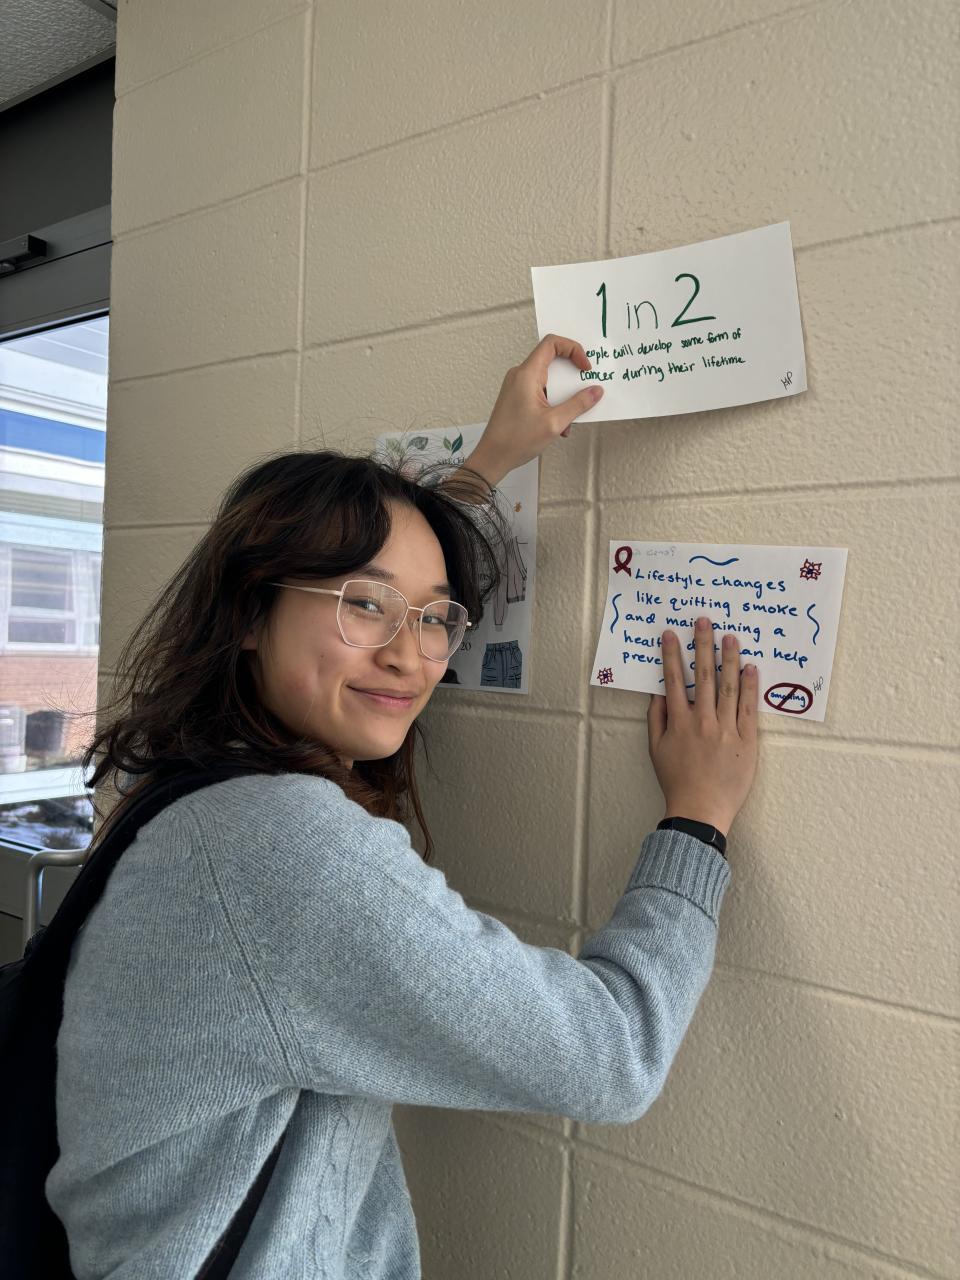 1 in 2
people will develop some form of
cancer during their lifetime
HP
Lifestyle changes
like quitting smoke
and maintaining a
healthy diet can help
prevent
smoking
HP
20